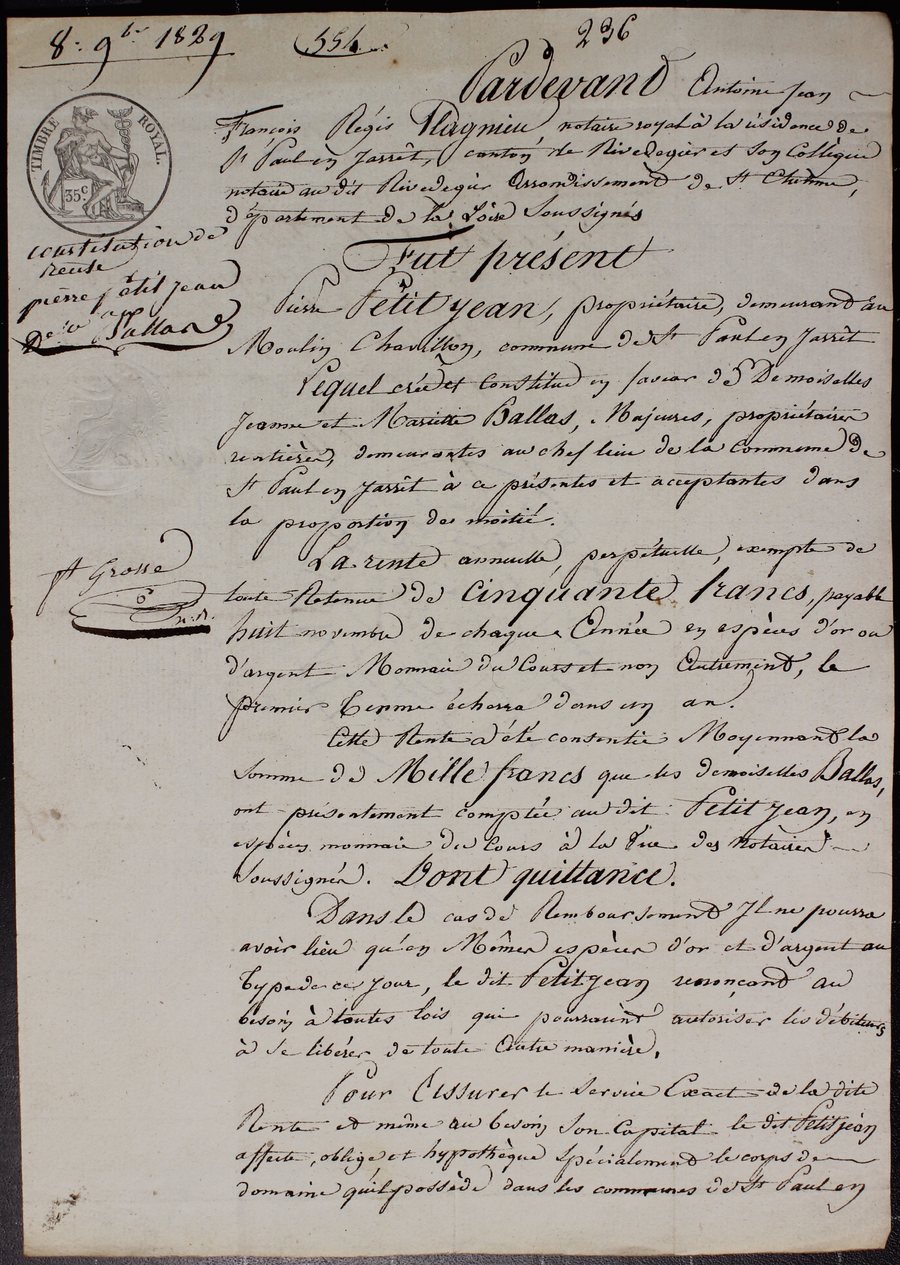 8. 9bre 1829
554
236
TIMBRE ROYAL.
35c
Pardevant Antoine Jean
François Régis Flagnieu, notaire royal à la résidence de
St Paul en Jarrêt, canton de Rivedegier et son Collègue
notaire au dit Rivedegier Arrondissement de St Etienne,
département de la Loire Soussignés
Fut présent
constitution de
rente
pierre petit jean
à
Dlles Ballas
Pierre Petit jean, propriétaire, demeurand au
Moulin Chavillon, commune de St Paul en Jarrêt
Lequel crée et Constitue en faveur de Demoiselles
Jeanne et Mariette Ballas, Majeures, propriétaires
rentières, demeurantes au chef lieu de la Commune de
St Paul en Jarrêt à ce présentes et acceptantes dans
la proportion de moitié.
La rente annuelle, perpétuelle, exempte de
ft Grosse
toute Retenue de Cinquante francs, payable
huit novembre de chaque Année en espèces d'or ou
d'argent Monnaie du Cours et non Autrement, le
premier Terme écherra dans un an.
Cette Rente a été consentie Moyennant la
Somme de Mille francs que les demoiselles Ballas,
ont présentement comptée au dit Petit jean, en
espèces monnaie du Cours à la Vue des Notaires
Soussignés. Dont quittance.
Dans le cas de Remboursement Il ne pourra
avoir lieu qu'en Mêmes espèces d'or et d'argent au
Type de ce jour, le dit Petit jean renonçand au
besoin à toutes lois qui pourraient autoriser les débiteurs
à se libérer de toute Autre manière.
Pour Assurer le service Exact de la dite
Rente et même au besoin Son Capital le dit Petit jean
affecte, oblige et hypothèque spécialement le corps de
domaine qu'il possède dans les communes de St Paul en